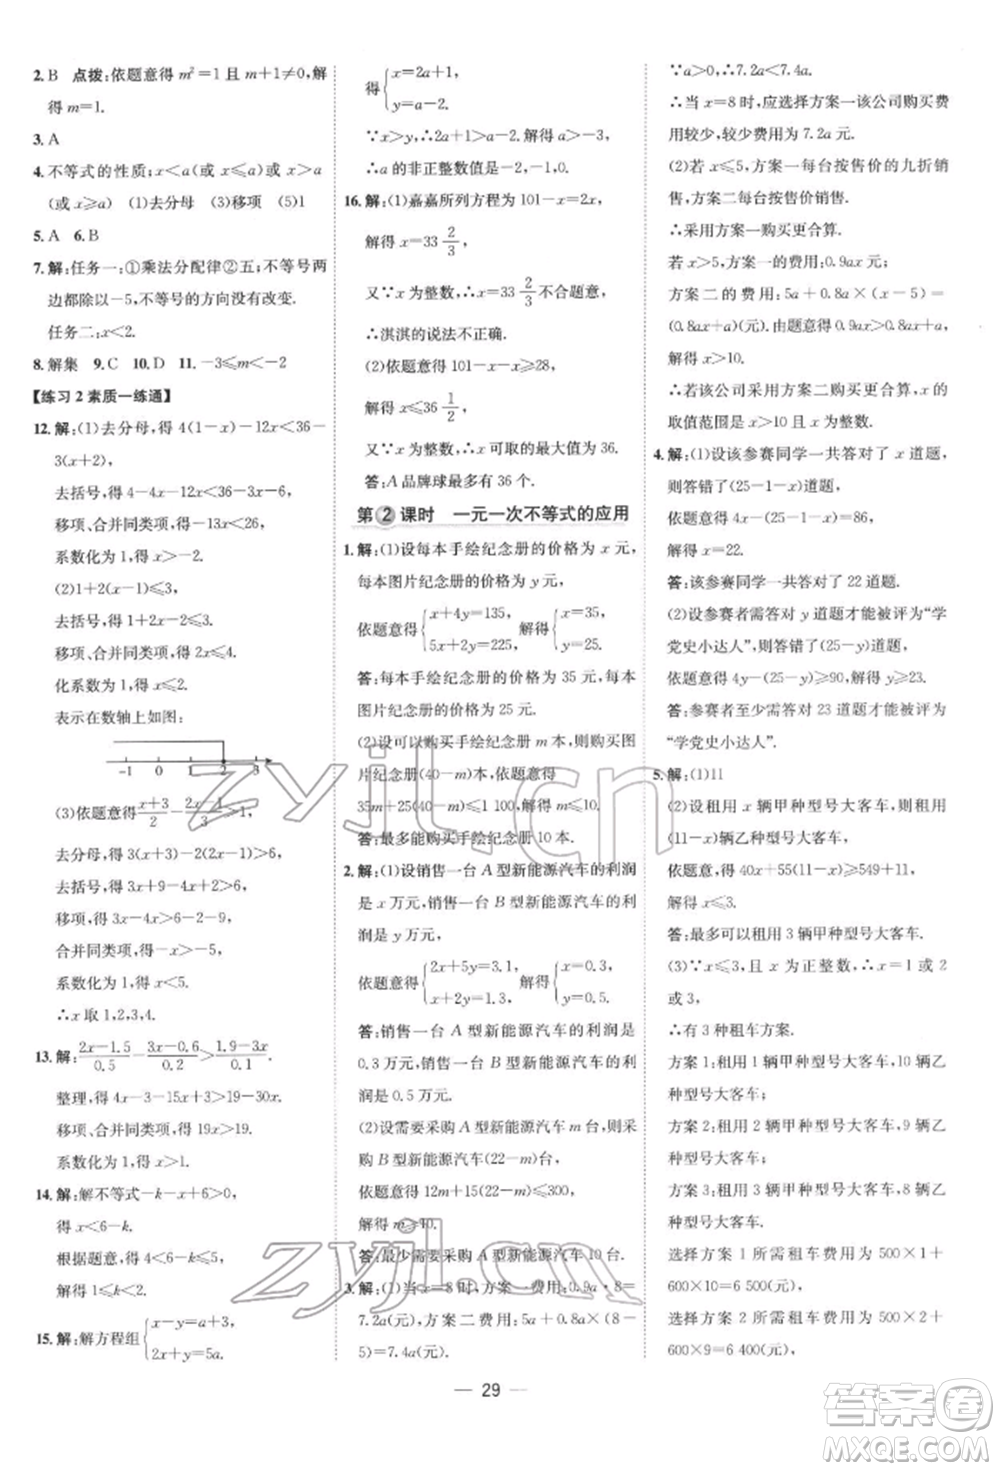 2. B 点拨:依题意得 m²=1 且 m+1≠0,解
得 m=1.
3. A
4. 不等式的性质;x<a(或 x≤a)或 x>a
(或 x≥a) (1)去分母 (3)移项 (5)1
5. A 6. B
7. 解:任务一:①乘法分配律②五;不等号两
边都除以-5,不等号的方向没有改变.
任务二:x<2.
8. 解集 9. C 10. D 11. -3≤m<-2
【练习 2 素质一练通】
12. 解:(1)去分母,得 4(1-x)-12x<36-
3(x+2),
去括号,得 4-4x-12x<36-3x-6,
移项、合并同类项,得-13x<26,
系数化为 1,得 x>-2.
(2)1+2(x-1)≤3,
去括号,得 1+2x-2≤3.
移项、合并同类项,得 2x≤4.
化系数为 1,得 x≤2.
表示在数轴上如图:
-1 0 1 2 3
(3)依题意得 (x+3)/2 - (x-3)/6 > 1,
去分母,得 3(x+3)-(x-3)>6,
去括号,得 3x+9-4x-2>6,
移项,得 3x-4x>6-9+2,
合并同类项,得-x>-5,
系数化为 1,得 x<5.
∴x 取 1,2,3,4.
13. 解: (2x-1.5)/0.5 - (3x-0.6)/0.2 > (1.9-3x)/0.1.
整理,得 4x-3-15x+3>19-30x.
移项、合并同类项,得 19x>19.
系数化为 1,得 x>1.
14. 解:解不等式-k-x+6>0,
得 x<6-k.
根据题意,得 4<6-k≤5.
解得 1≤k<2.
15. 解:解方程组 {x-y=a+3, 2x+y=5a.
得 {x=2a+1, y=a-2.
∵x>y,∴2a+1>a-2. 解得 a>-3,
∴a 的非正整数值为-2,-1,0.
16. 解:(1)嘉嘉所列方程为 101-x=2x,
解得 x=33 2/3,
又∵x 为整数,∴x=33 2/3 不合题意,
∴淇淇的说法不正确.
(2)依题意得 101-x-x≥28,
解得 x≤36 1/2,
又∵x 为整数,∴x 可取的最大值为 36.
答:A 品牌球最多有 36 个.
第2课时 一元一次不等式的应用
1. 解:(1)设每本手绘纪念册的价格为 x 元,
每本图片纪念册的价格为 y 元,
依题意得 {x+4y=135, 5x+2y=225, 解得 {x=35, y=25.
答:每本手绘纪念册的价格为 35 元,每本
图片纪念册的价格为 25 元.
(2)设可以购买手绘纪念册 m 本,则购买图
片纪念册(40-m)本,依题意得
35m+25(40-m)≤1 100,解得 m≤10.
答:最多能购买手绘纪念册 10 本.
2. 解:(1)设销售一台 A 型新能源汽车的利润
是 x 万元,销售一台 B 型新能源汽车的利
润是 y 万元,
依题意得 {2x+5y=3.1, x+2y=1.3, 解得 {x=0.3, y=0.5.
答:销售一台 A 型新能源汽车的利润是
0.3 万元,销售一台 B 型新能源汽车的利
润是 0.5 万元.
(2)设需要采购 A 型新能源汽车 m 台,则采
购 B 型新能源汽车(22-m)台,
依题意得 12m+15(22-m)≤300,
解得 m≥10.
答:最少需要采购 A 型新能源汽车 10 台.
3. 解:(1)当 x=8 时,方案一费用:0.9a·8=
7.2a(元),方案二费用:5a+0.8a(8-
5)=7.4a(元).
∵a>0,∴7.2a<7.4a.
∴当 x=8 时,应选择方案一该公司购买费
用较少,最少费用为 7.2a 元.
(2)若 x≤5,方案一每台按售价的九折销
售,方案二每台按售价销售.
∴采用方案一购买更合算.
若 x>5,方案一的费用:0.9ax 元,
方案二的费用:5a+0.8a(x-5)=
(0.8ax+a)(元).由题意得 0.9ax>0.8ax+a,
解得 x>10.
∴若该公司采用方案二购买更合算,x 的
取值范围是 x>10 且 x 为正整数.
4. 解:(1)设该参赛同学一共答对了 x 道题,
则答错了(25-1-x)道题,
依题意得 4x-(25-1-x)=86,
解得 x=22.
答:该参赛同学一共答对了 22 道题.
(2)设参赛者需答对 y 道题才能被评为“学
党史小达人”,则答错了(25-y)道题,
依题意得 4y-(25-y)≥90,解得 y≥23.
答:参赛者至少需答对 23 道题才能被评为
“学党史小达人”.
5. 解:(1)11
(2)设租用 x 辆甲种型号大客车,则租用
(11-x)辆乙种型号大客车,
依题意得 40x+55(11-x)≥549+11,
解得 x≤3.
答:最多可以租用 3 辆甲种型号大客车.
(3)∵x≤3,且 x 为正整数,∴x=1 或 2
或 3,
∴有 3 种租车方案.
方案 1:租用 1 辆甲种型号大客车,10 辆乙
种型号大客车;
方案 2:租用 2 辆甲种型号大客车,9 辆乙
种型号大客车;
方案 3:租用 3 辆甲种型号大客车,8 辆乙
种型号大客车.
选择方案 1 所需租车费用为 500×1+
600×10=6 500(元),
选择方案 2 所需租车费用为 500×2+
600×9=6 400(元),
29
zyjl.cn
zyjl.cn
答案圈
MXQE.COM